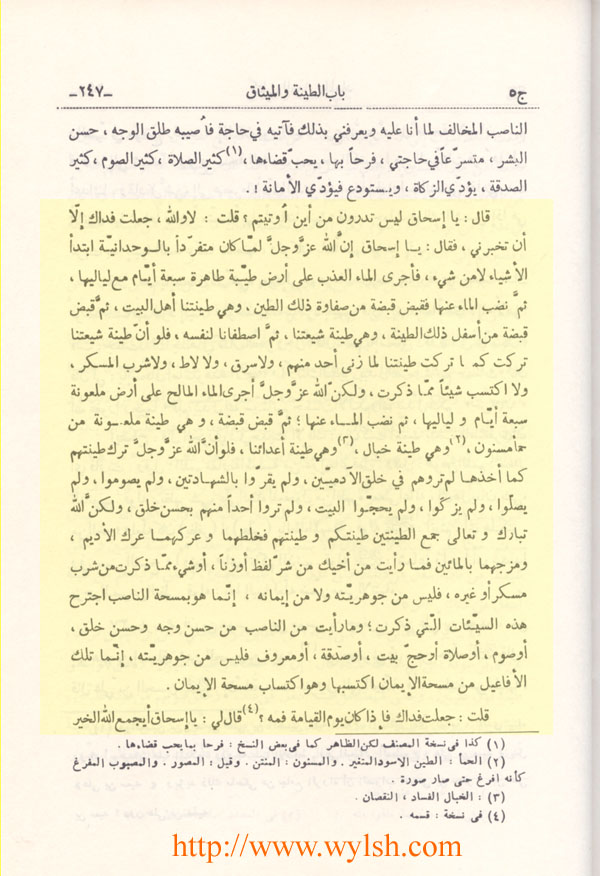 ج٥ باب الطينة والميثاق -٢٤٧-
الناصب المخالف لما أنا عليه ويعرفني بذلك فآتيه في حاجة فاُصيبه طلق الوجه ، حسن
البشر ، متسرّعاً في حاجتي ، فرحاً بها ، يحبّ قضاءها ،(١) كثير الصلاة ، كثير الصوم ، كثير
الصدقة ، يؤدّي الزكاة ، ويستودع فيؤدّي الأمانة ! .
قال : يا إسحاق ليس تدرون من أين اُوتيتم ؟ قلت : لا والله ، جعلت فداك إلّا
أن تخبرني ، فقال : يا إسحاق إنَّ الله عزَّ وجلَّ لمّا كان متفرّداً بالوحدانيّة ابتدأ
الأشياء لامن شيء ، فأجرى الماء العذب على أرض طيّبة طاهرة سبعة أيّام مع لياليها ،
ثمَّ نضب الماء عنها فقبض قبضة من صفاوة ذلك الطين ، وهي طينتنا أهل البيت ، ثمَّ قبض
قبضة من أسفل ذلك الطينة ، وهي طينة شيعتنا ، ثمَّ اصطفانا لنفسه ، فلو أنّ طينة شيعتنا
تركت كما تركت طينتنا لما زنى أحد منهم ، ولاسرق ، ولا لاط ، ولاشرب المسكر ،
ولا اكتسب شيئاً ممّا ذكرت ، ولكنّ الله عزَّ وجلَّ أجرى الماء المالح على أرض ملعونة
سبعة أيّام و لياليها ، ثم نضب الماء عنها ؛ ثمَّ قبض قبضة ، و هي طينة ملعونة من
حمأ مسنون ،(٢) وهي طينة خبال ،(٣) وهي طينة أعدائنا ، فلو أنَّ الله عزَّ وجلَّ ترك طينتهم
كما أخذها لم تروهم في خلق الآدميّين ، ولم يقرّوا بالشهادتين ، ولم يصوموا ، ولم
يصلّوا ، ولم يزكّوا ، ولم يحجّوا البيت ، ولم تروا أحداً منهم بحسن خلق ، ولكنَّ الله
تبارك و تعالى جمع الطينتين طينتكم و طينتهم فخلطهما و عركهما عرك الأديم ،
ومزجهما بالمائين فما رأيت من أخيك من شرّ لفظ أوزناً ، أوشيء ممّا ذكرت من شرب
مسكر أو غيره ، فليس من جوهريّته ولا من إيمانه ، إنّما هو بمسحة الناصب اجترح
هذه السيّئات الّتي ذكرت ؛ ومارأيت من الناصب من حسن وجه وحسن خلق ،
أوصوم ، أوصلاة أوحجّ بيت ، أوصدقة ، أومعروف فليس من جوهريّته ، إنّما تلك
الأفاعيل من مسحة الإيمان اكتسبها وهو اكتساب مسحة الإيمان .
قلت : جعلت فداك فإذا كان يوم القيامة فمه ؟(٤) قال لي : يا إسحاق أيجمع الله الخير
(١) كذا فى نسخة المصنف لكن الظاهر كما فى بعض النسخ : فرحا بما يحب قضاءها .
(٢) الحمأ : الطين الاسود المتغير . والمسنون : المنتن . وقيل : المصور . والمصبوب المفرغ
كأنه افرغ حتى صار صورة .
(٣) : الخبال الفساد ، النقصان .
(٤) فى نسخة : قسمه .
http://www.wylsh.com